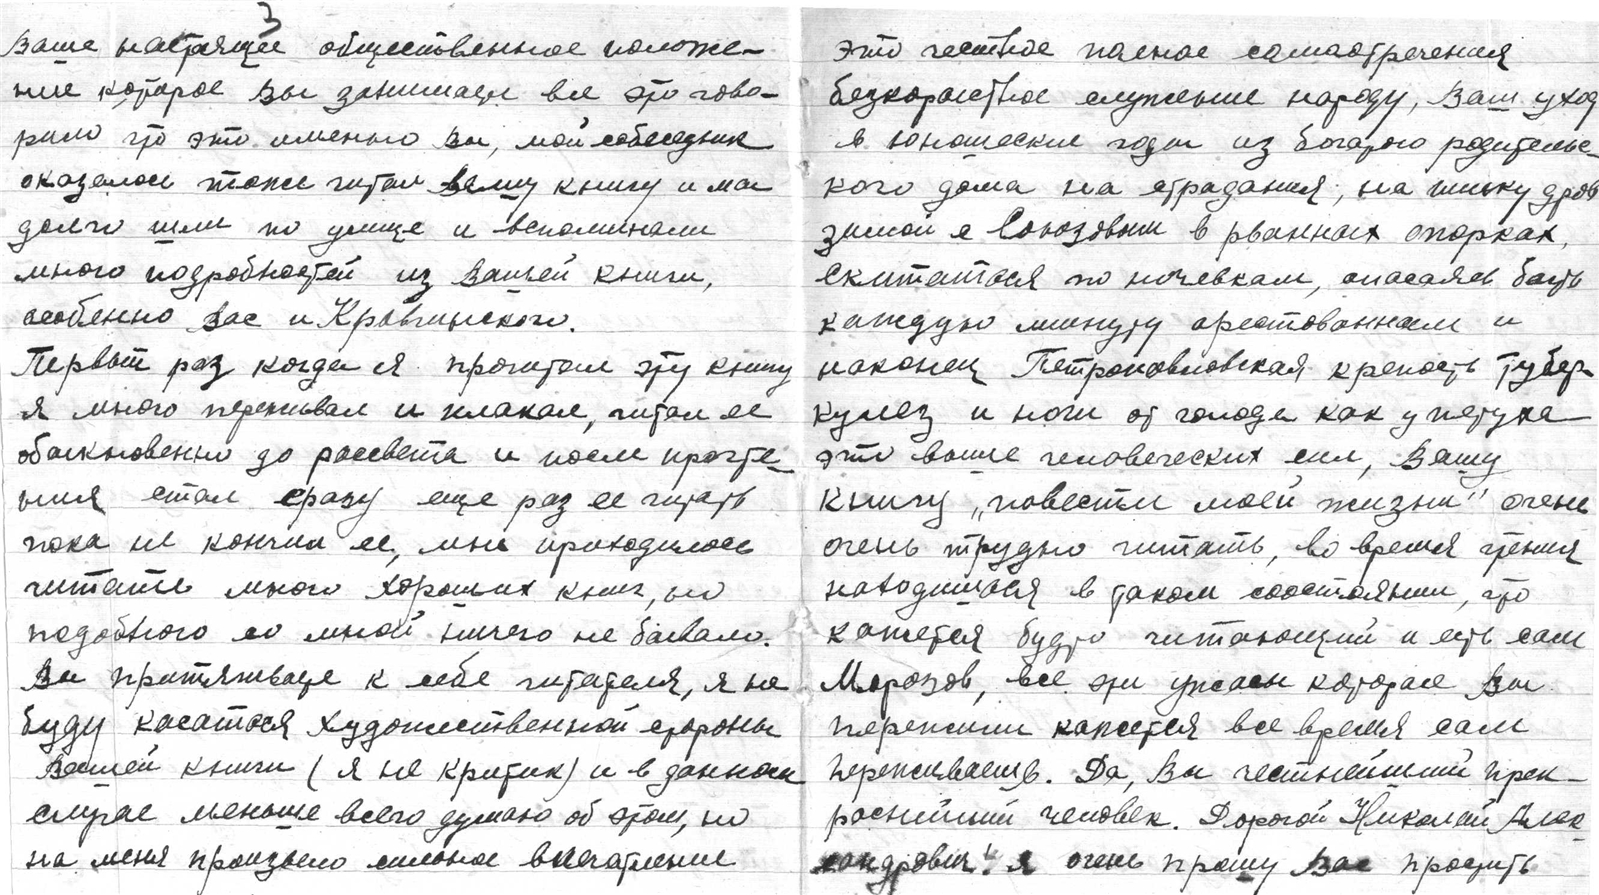 3
Ваше настоящее общественное положе-
ние которое Вы занимаете все это гово-
рило что это именно Вы, мой собеседник
оказалось тоже читал Вашу книгу и мы
долго шли по улице и вспоминали
много подробностей из Вашей книги,
особенно Вас и Кравчинского.
Первый раз когда я прочитал эту книгу
я много переживал и плакал, читал ее
обыкновенно до рассвета и после прочте-
ния стал сразу еще раз ее читать
пока не кончил ее, мне приходилось
читать много хороших книг, но
подобного со мной ничего не бывало.
Вы притягиваете к себе читателя, я не
буду касаться художественной стороны
Вашей книги (я не критик) и в данном
случае меньше всего думаю об этом, но
на меня произвело сильное впечатление
это честное полное самоотречения
безкорыстное служение народу, Ваш уход
в юношеские годы из богатого родительс-
кого дома на страдания, на пилку дров
зимой с Союзовым в рванных опорках,
скитаться по ночевкам, опасаясь быть
каждую минуту арестованным и
наконец Петропавловская крепость тубер-
кулез и ноги от голода как у петуха —
это выше человеческих сил, Вашу
книгу „повести моей жизни" очень
очень трудно читать, во время чтения
находишься в таком состоянии, что
кажется будто читающий и есть сам
Морозов, все эти ужасы которые Вы
пережили кажется все время сам
переживаешь. Да, Вы честнейший прек-
раснейший человек. Дорогой Николай Алек-
сандрович! я очень прошу Вас простить